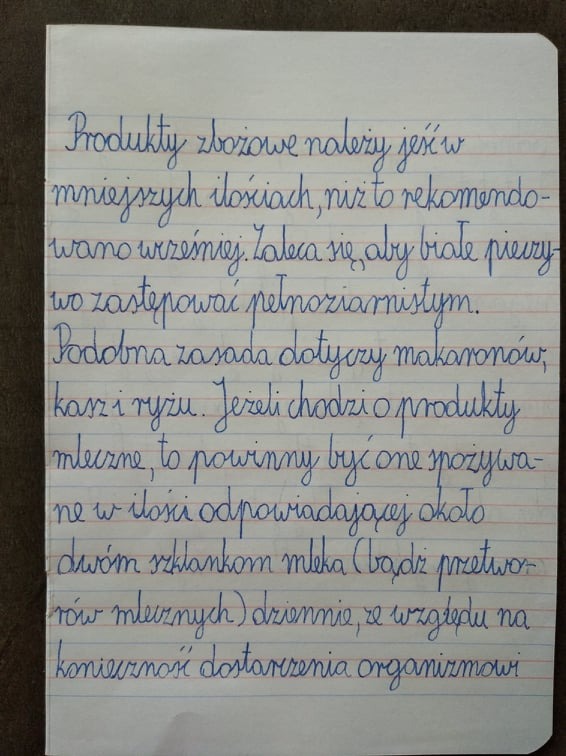 Produkty zbożowe należy jeść w
mniejszych ilościach, niż to rekomendo-
wano wcześniej. Zaleca się, aby białe pieczy-
wo zastępować pełnoziarnistym.
Podobna zasada dotyczy makaronów,
kasz i ryżu. Jeżeli chodzi o produkty
mleczne, to powinny być one spożywa-
ne w ilości odpowiadającej około
dwóm szklankom mleka (bądź przetwo-
rów mlecznych) dziennie, ze względu na
konieczność dostarczenia organizmowi